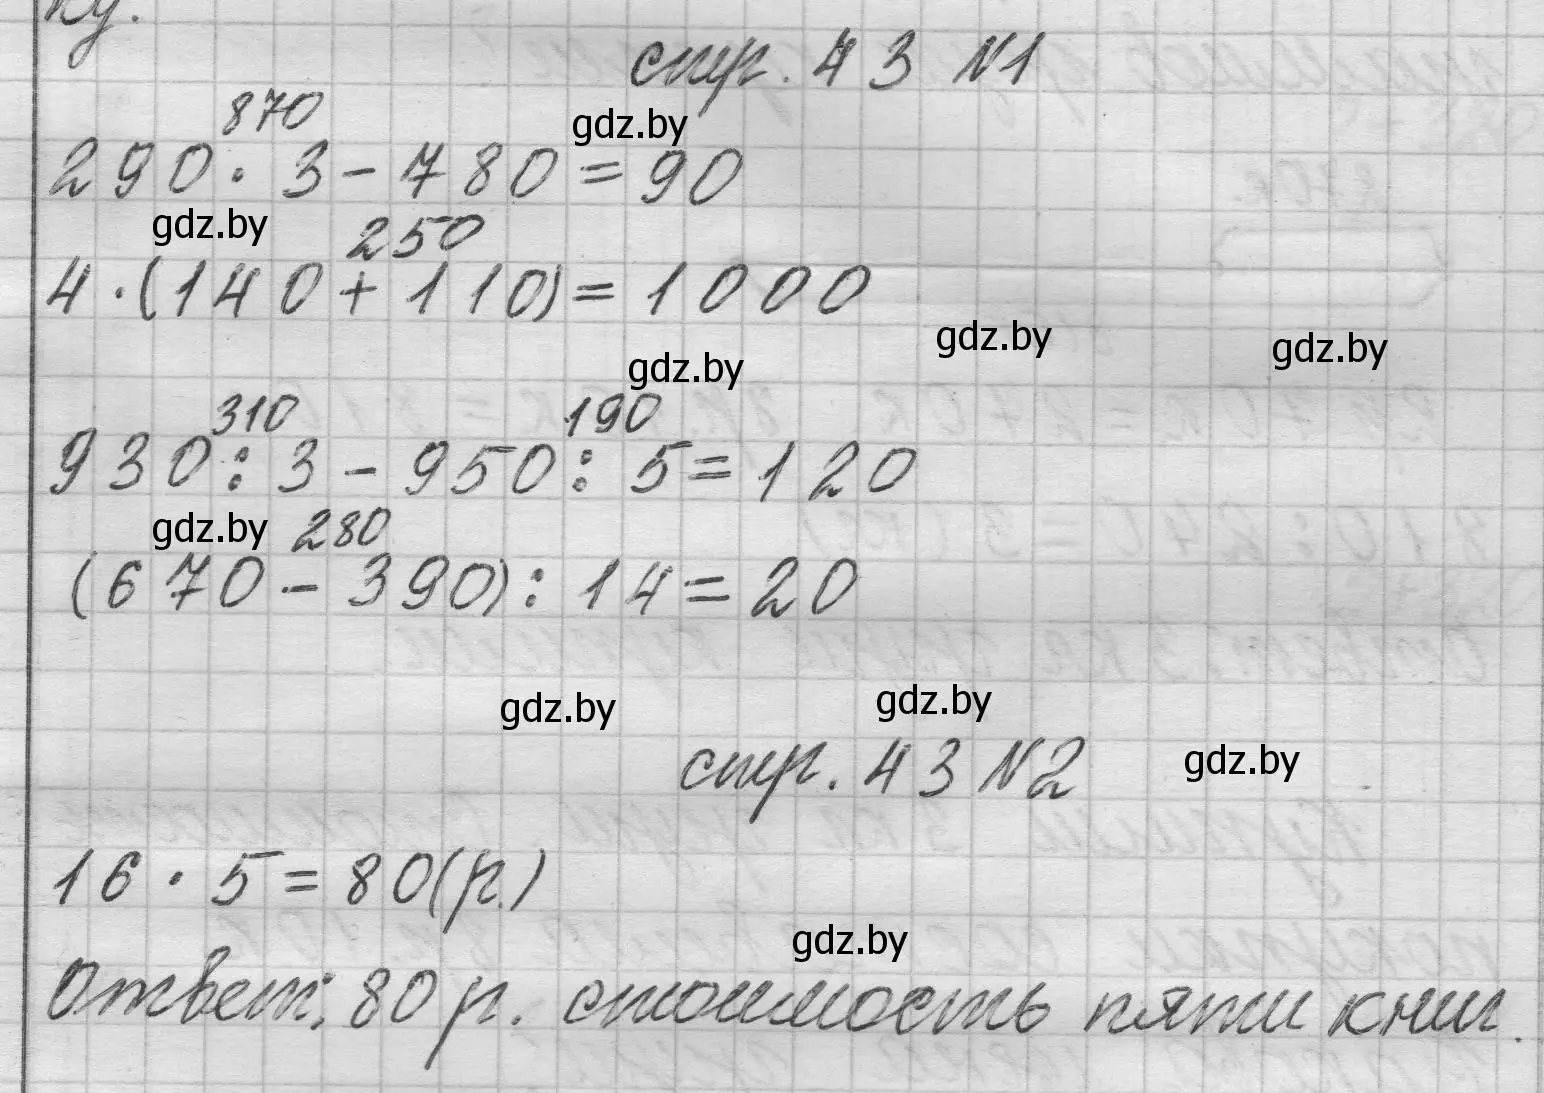 ку.
стр. 43 №1
870
290 · 3 - 780 = 90
250
4 · (140 + 110) = 1000
310 190
930 : 3 - 950 : 5 = 120
280
(670 - 390) : 14 = 20
стр. 43 №2
16 · 5 = 80 (р.)
Ответ: 80 р. стоимость пяти книг.
gdz.by
gdz.by
gdz.by
gdz.by
gdz.by
gdz.by
gdz.by
gdz.by
gdz.by
gdz.by